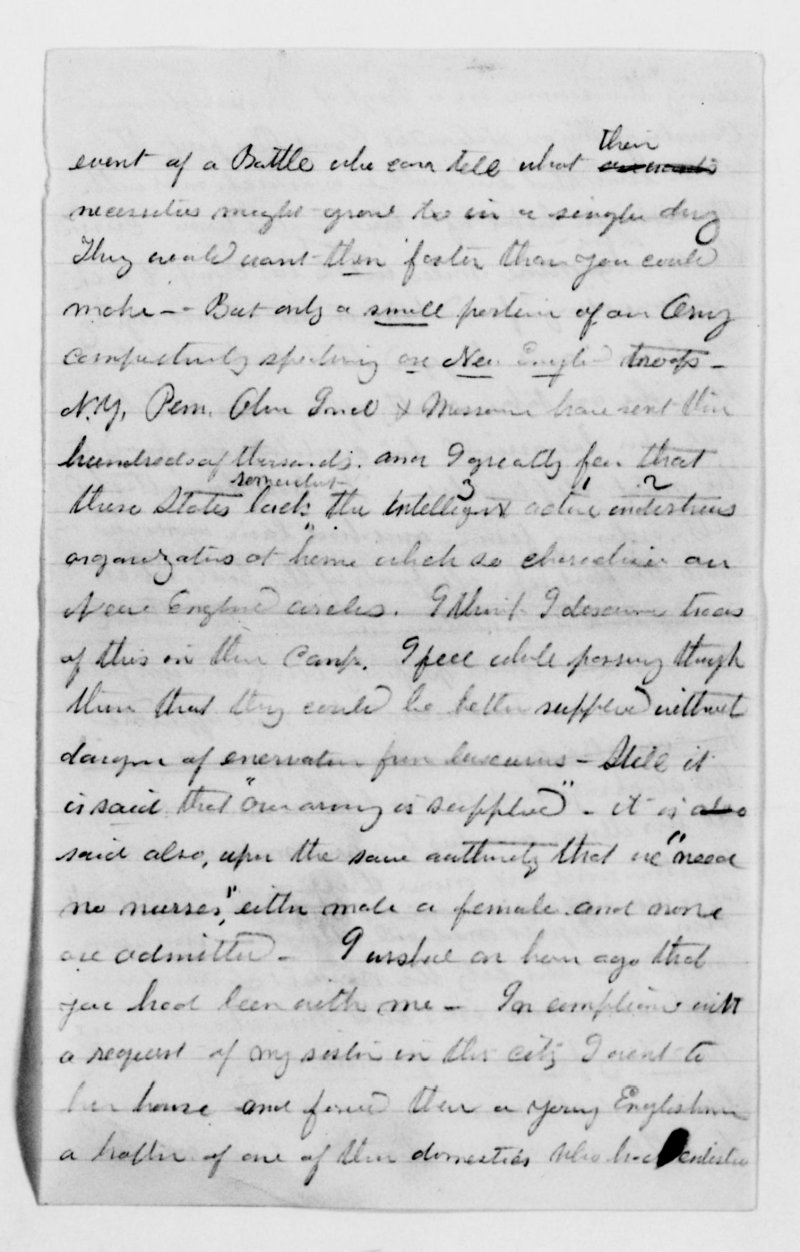 event of a Battle who can tell what their
necessities might grow to in a single day
They would want then faster than you could
make – - But only a small portion of our Army
comparatively speaking are New England troops –
N.Y, Penn, Ohio & Missouri have sent their
hundreds of thousands. and I greatly fear that
these States lack somewhat the intelligent 3 active 1 industrious 2
organizations at "home which so characterize our
New England circles. I think I discover traces
of this in their camp. I feel while passing through
them that they could be better supplied without
danger of enervation from luxuries – Still it
is said that "our army is supplied" – it is also
said also, upon the same authority that we "need
no nurses," either male or female and none
are admitted – I wished an hour ago that
you had been with me – In compliance with
a request of my sister in this city I went to
her house and found there a young Englishman
a brother of one of their domestics who had enlisted